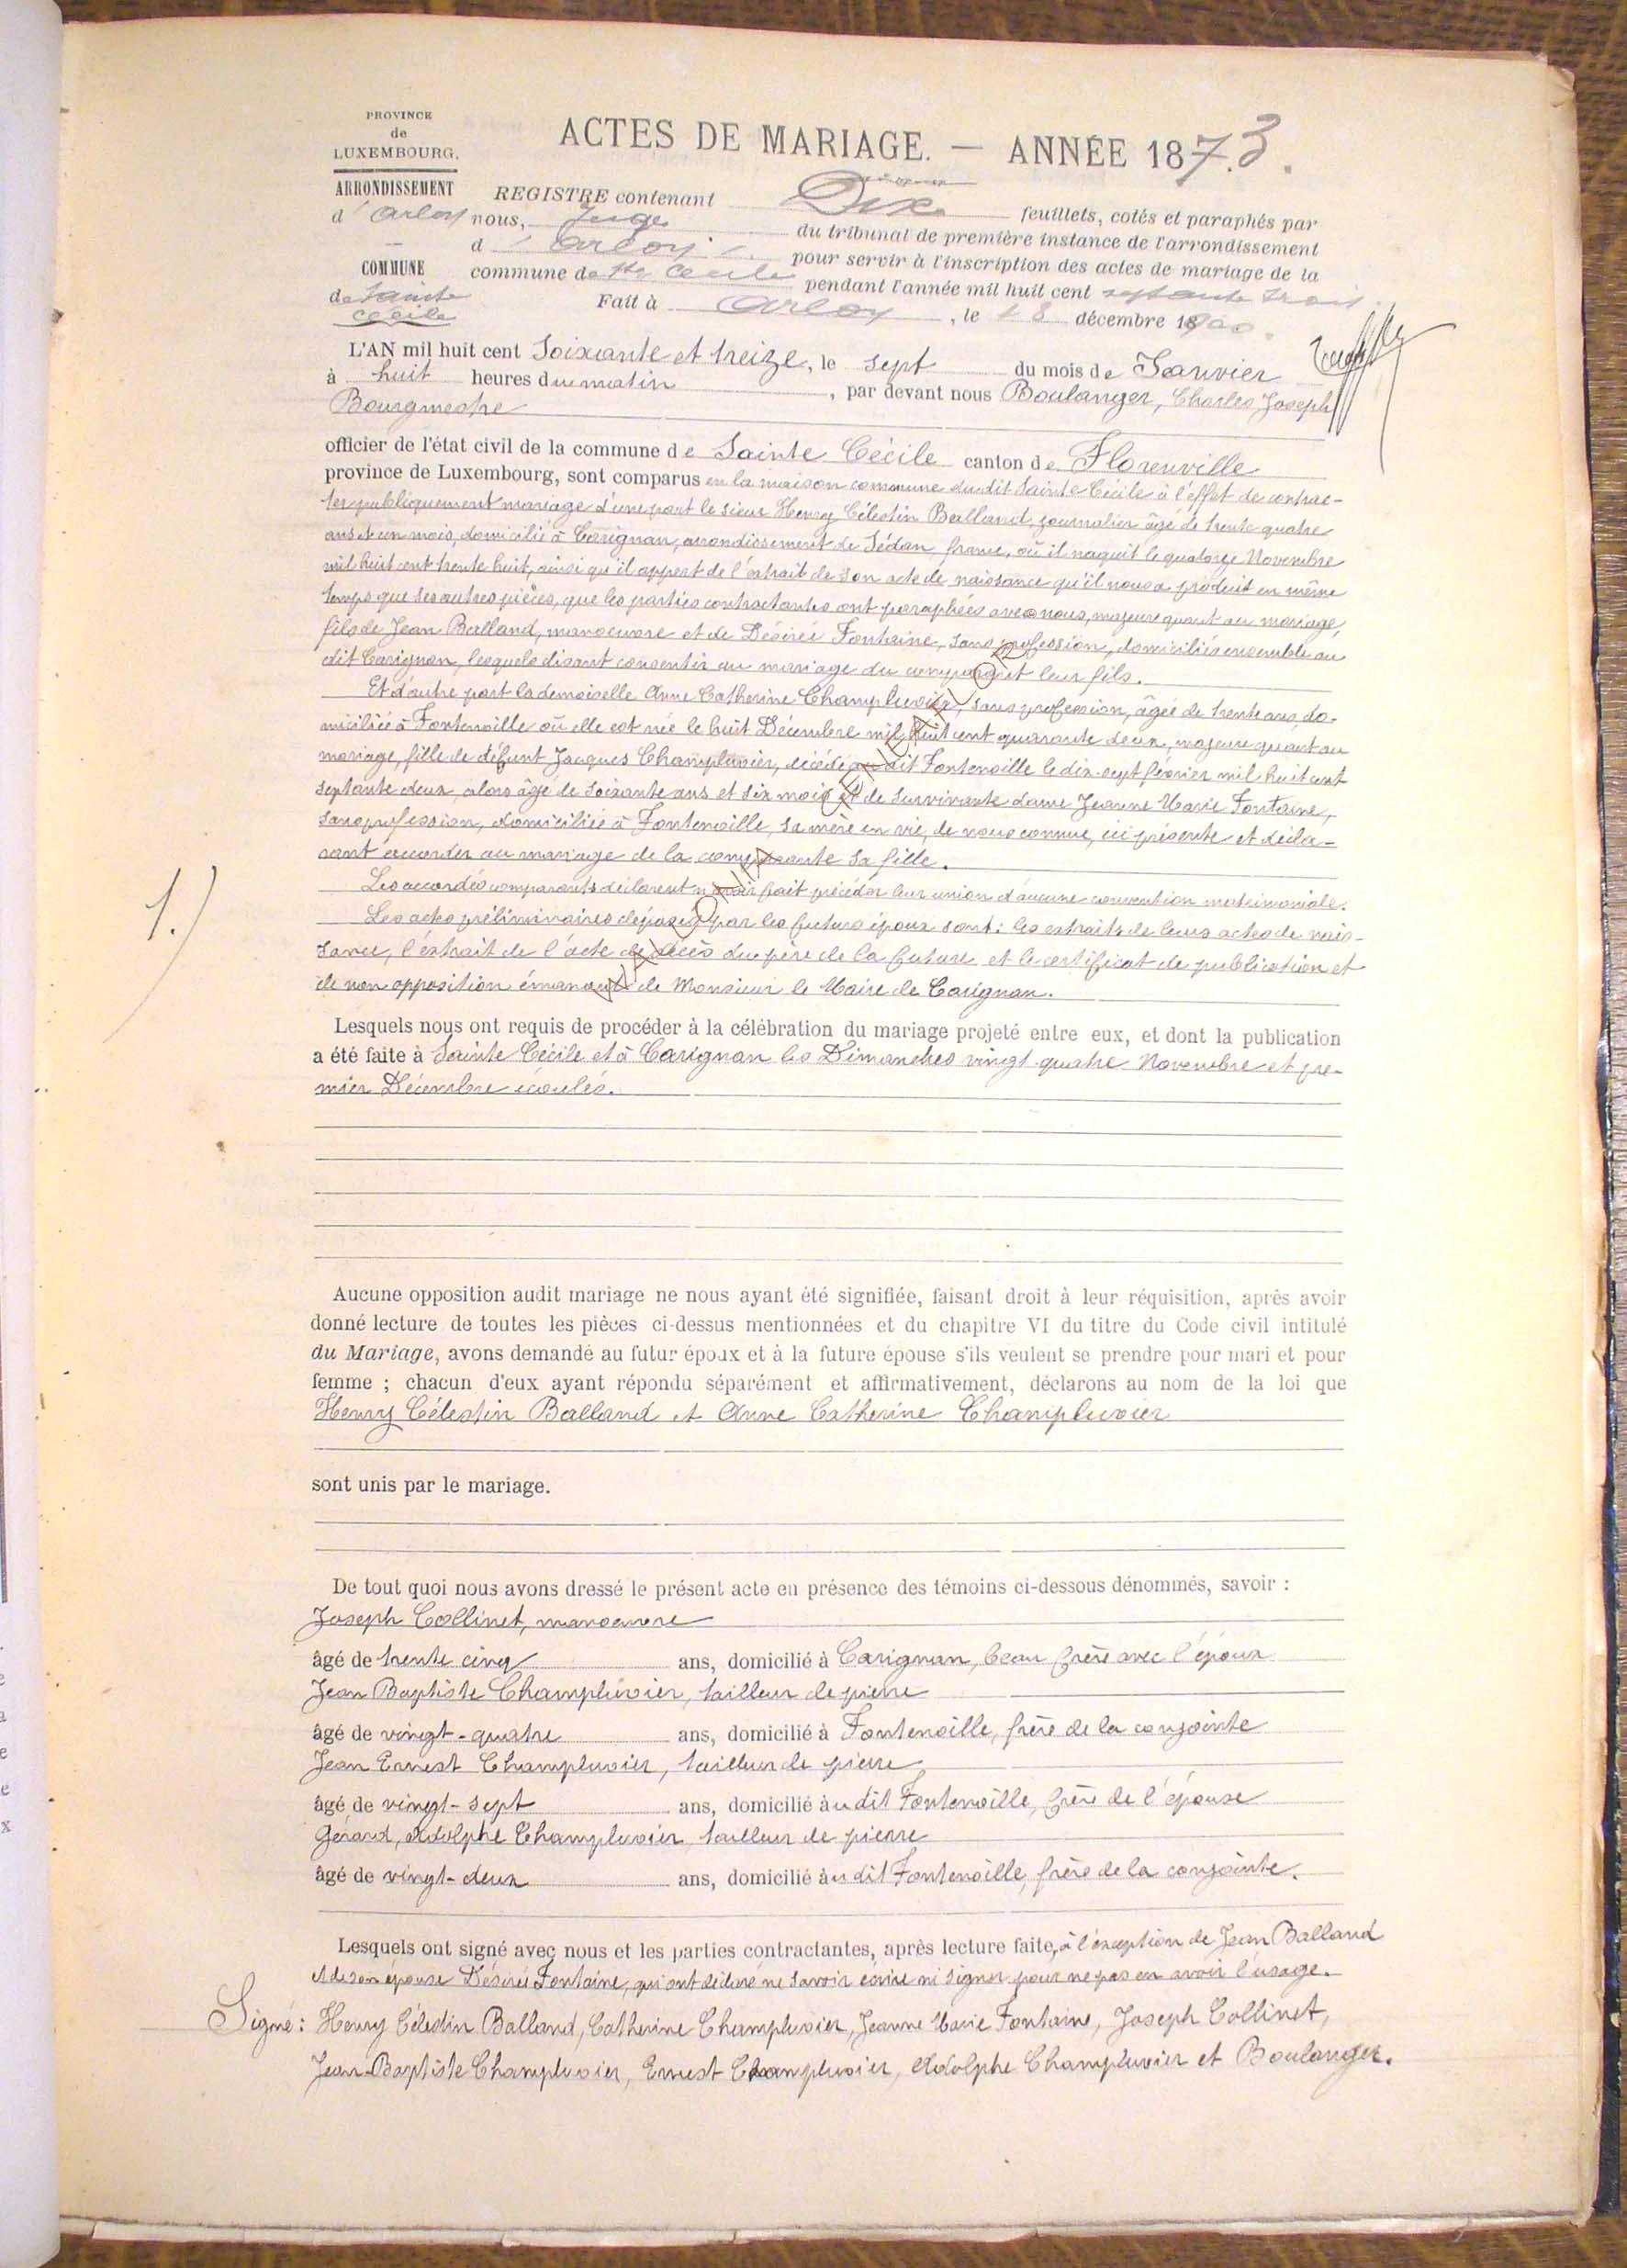 PROVINCE
de
LUXEMBOURG.
ARRONDISSEMENT
d'Arlon
COMMUNE
de Sainte
Cécile
ACTES DE MARIAGE. — ANNÉE 1873.
REGISTRE contenant Dix feuillets, cotés et paraphés par
nous, Juge du tribunal de première instance de l'arrondissement
d'Arlon pour servir à l'inscription des actes de mariage de la
commune de Ste Cécile pendant l'année mil huit cent septante trois.
Fait à Arlon, le 18 décembre 1900.
L'AN mil huit cent Soixante et treize, le sept du mois de Janvier
à huit heures du matin, par devant nous Boulanger, Charles Joseph
Bourgmestre
officier de l'état civil de la commune de Sainte Cécile canton de Florenville
province de Luxembourg, sont comparus en la maison commune dudit Sainte Cécile à l'effet de contrac-
ter publiquement mariage d'une part le sieur Henry Célestin Balland, journalier âgé de trente quatre
ans et un mois, domicilié à Carignan, arrondissement de Sédan, france, où il naquit le quatorze Novembre
mil huit cent trente huit, ainsi qu'il appert de l'extrait de son acte de naissance qu'il nous a produit en même
temps que ses autres pièces, que les parties contractantes ont paraphées avec nous, majeur quant au mariage,
fils de Jean Balland, manoeuvre et de Désirée Fontaine, sans profession, domiciliés ensemble au
dit Carignan, lesquels disant consentir au mariage du comparant leur fils.
Et d'autre part la demoiselle Anne Catherine Champluvier, sans profession, âgée de trente ans, do-
miciliée à Fontenoille où elle est née le huit Décembre mil huit cent quarante deux, majeure quant au
mariage, fille de défunt Jacques Champluvier, décédé au dit Fontenoille le dix-sept février mil huit cent
septante deux, alors âgé de soixante ans et six mois et de survivante dame Jeanne Marie Fontaine,
sans profession, domiciliée à Fontenoille, sa mère en vie, de nous connue, ici présente et décla-
rant accorder au mariage de la comparante sa fille.
Les accordés comparants déclarent n'avoir fait précéder leur union d'aucune convention matrimoniale.
1.)
Les actes préliminaires déposés par les futurs époux sont: les extraits de leurs actes de nais-
sance, l'extrait de l'acte de décès du père de la future et le certificat de publication et
de non opposition émanant de Monsieur le Maire de Carignan.
WALLONIA GENEALOR
Lesquels nous ont requis de procéder à la célébration du mariage projeté entre eux, et dont la publication
a été faite à Sainte Cécile et à Carignan les Dimanches vingt-quatre Novembre et pre-
mier Décembre écoulés.
Aucune opposition audit mariage ne nous ayant été signifiée, faisant droit à leur réquisition, après avoir
donné lecture de toutes les pièces ci-dessus mentionnées et du chapitre VI du titre du Code civil intitulé
du Mariage, avons demandé au futur époux et à la future épouse s'ils veulent se prendre pour mari et pour
femme ; chacun d'eux ayant répondu séparément et affirmativement, déclarons au nom de la loi que
Henry Célestin Balland et Anne Catherine Champluvier
sont unis par le mariage.
De tout quoi nous avons dressé le présent acte en présence des témoins ci-dessous dénommés, savoir :
Joseph Collinet, manoeuvre
âgé de trente cinq ans, domicilié à Carignan, beau frère avec l'époux
Jean Baptiste Champluvier, tailleur de pierre
âgé de vingt-quatre ans, domicilié à Fontenoille, frère de la conjointe
Jean Ernest Champluvier, tailleur de pierre
âgé de vingt-sept ans, domicilié audit Fontenoille, frère de l'épouse
Gérard, Adolphe Champluvier, tailleur de pierre
âgé de vingt-deux ans, domicilié audit Fontenoille, frère de la conjointe.
Lesquels ont signé avec nous et les parties contractantes, après lecture faite, à l'exception de Jean Balland
et de son épouse Désirée Fontaine, qui ont déclaré ne savoir écrire ni signer pour ne pas en avoir l'usage.
Signé: Henry Célestin Balland, Catherine Champluvier, Jeanne Marie Fontaine, Joseph Collinet,
Jean-Baptiste Champluvier, Ernest Champluvier, Adolphe Champluvier et Boulanger.